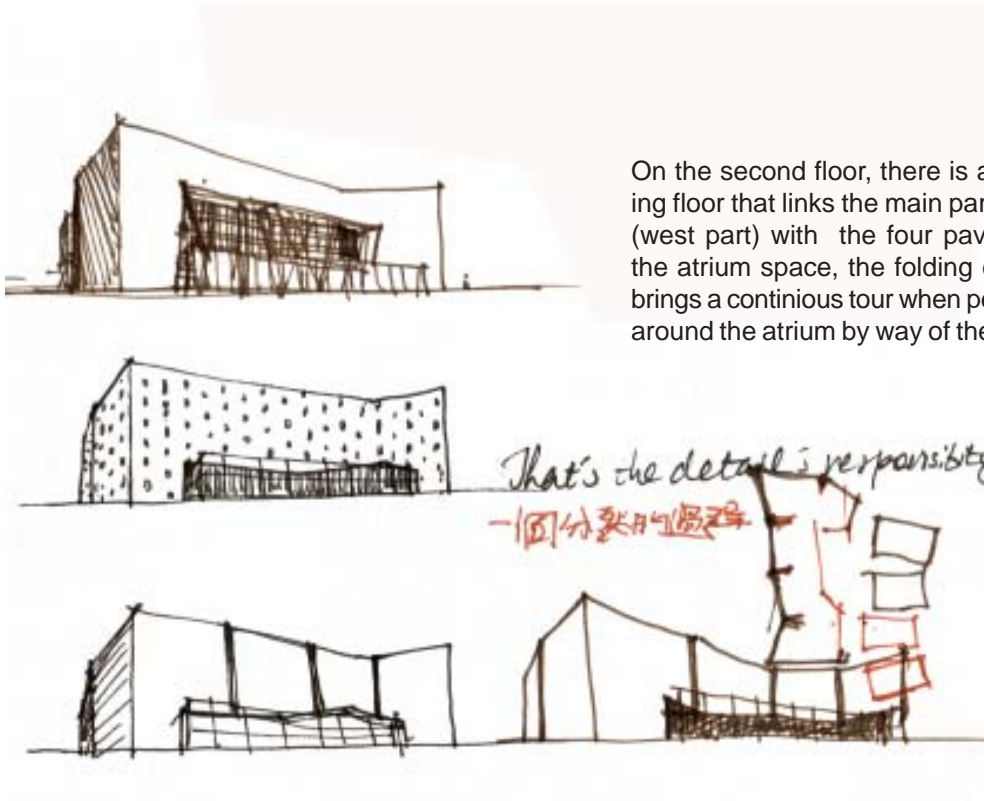 On the second floor, there is a
ing floor that links the main par
(west part) with the four pav
the atrium space, the folding
brings a continious tour when pe
around the atrium by way of the
That's the detail's responsibity
一個分裂的過程